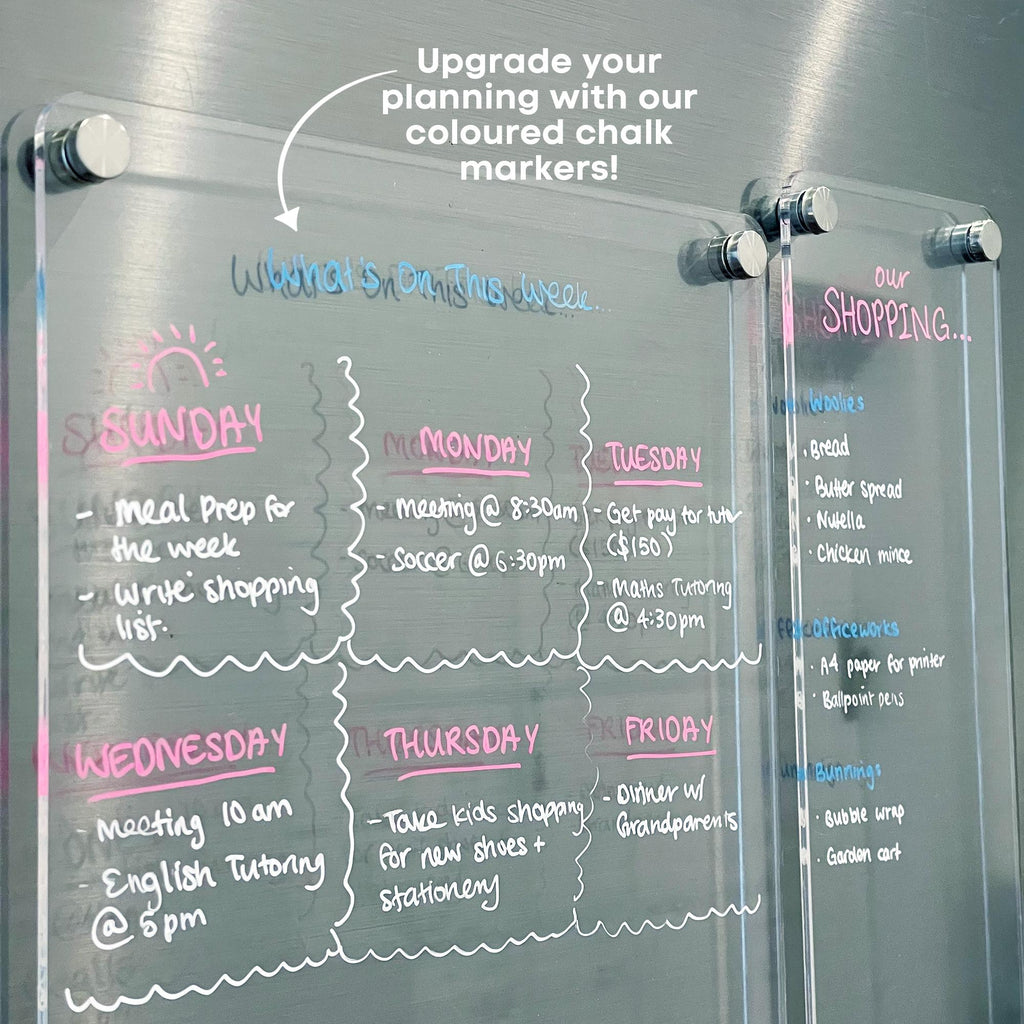 Upgrade your
planning with our
coloured chalk
markers!
What's On This Week...
SUNDAY
- Meal Prep for
the week
- Write shopping
list.
MONDAY
- Meeting @ 8:30am
- Soccer @ 6:30pm
TUESDAY
- Get pay for tutor
($150)
- Maths Tutoring
@ 4:30pm
WEDNESDAY
- Meeting 10am
- English Tutoring
@ 5pm
THURSDAY
- Take kids shopping
for new shoes +
stationery
FRIDAY
- Dinner w/
Grandparents
our
SHOPPING...
Woolies
· Bread
· Butter spread
· Nutella
· Chicken mince
Officeworks
· A4 paper for printer
· Ballpoint pens
Bunnings
· Bubble wrap
· Garden cart